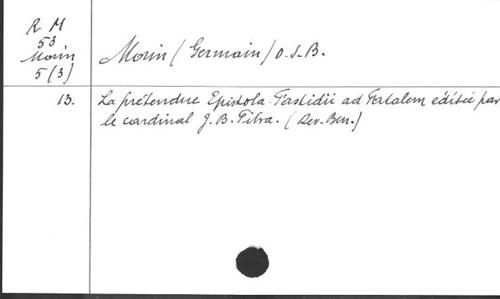 R M
53
Morin
5(3)
Morin (Germain) O.S.B.
13.
La prétendue Epistola Fastidii ad Fatalem éditée par
le cardinal J.B. Pitra. (Rev. Ben.)